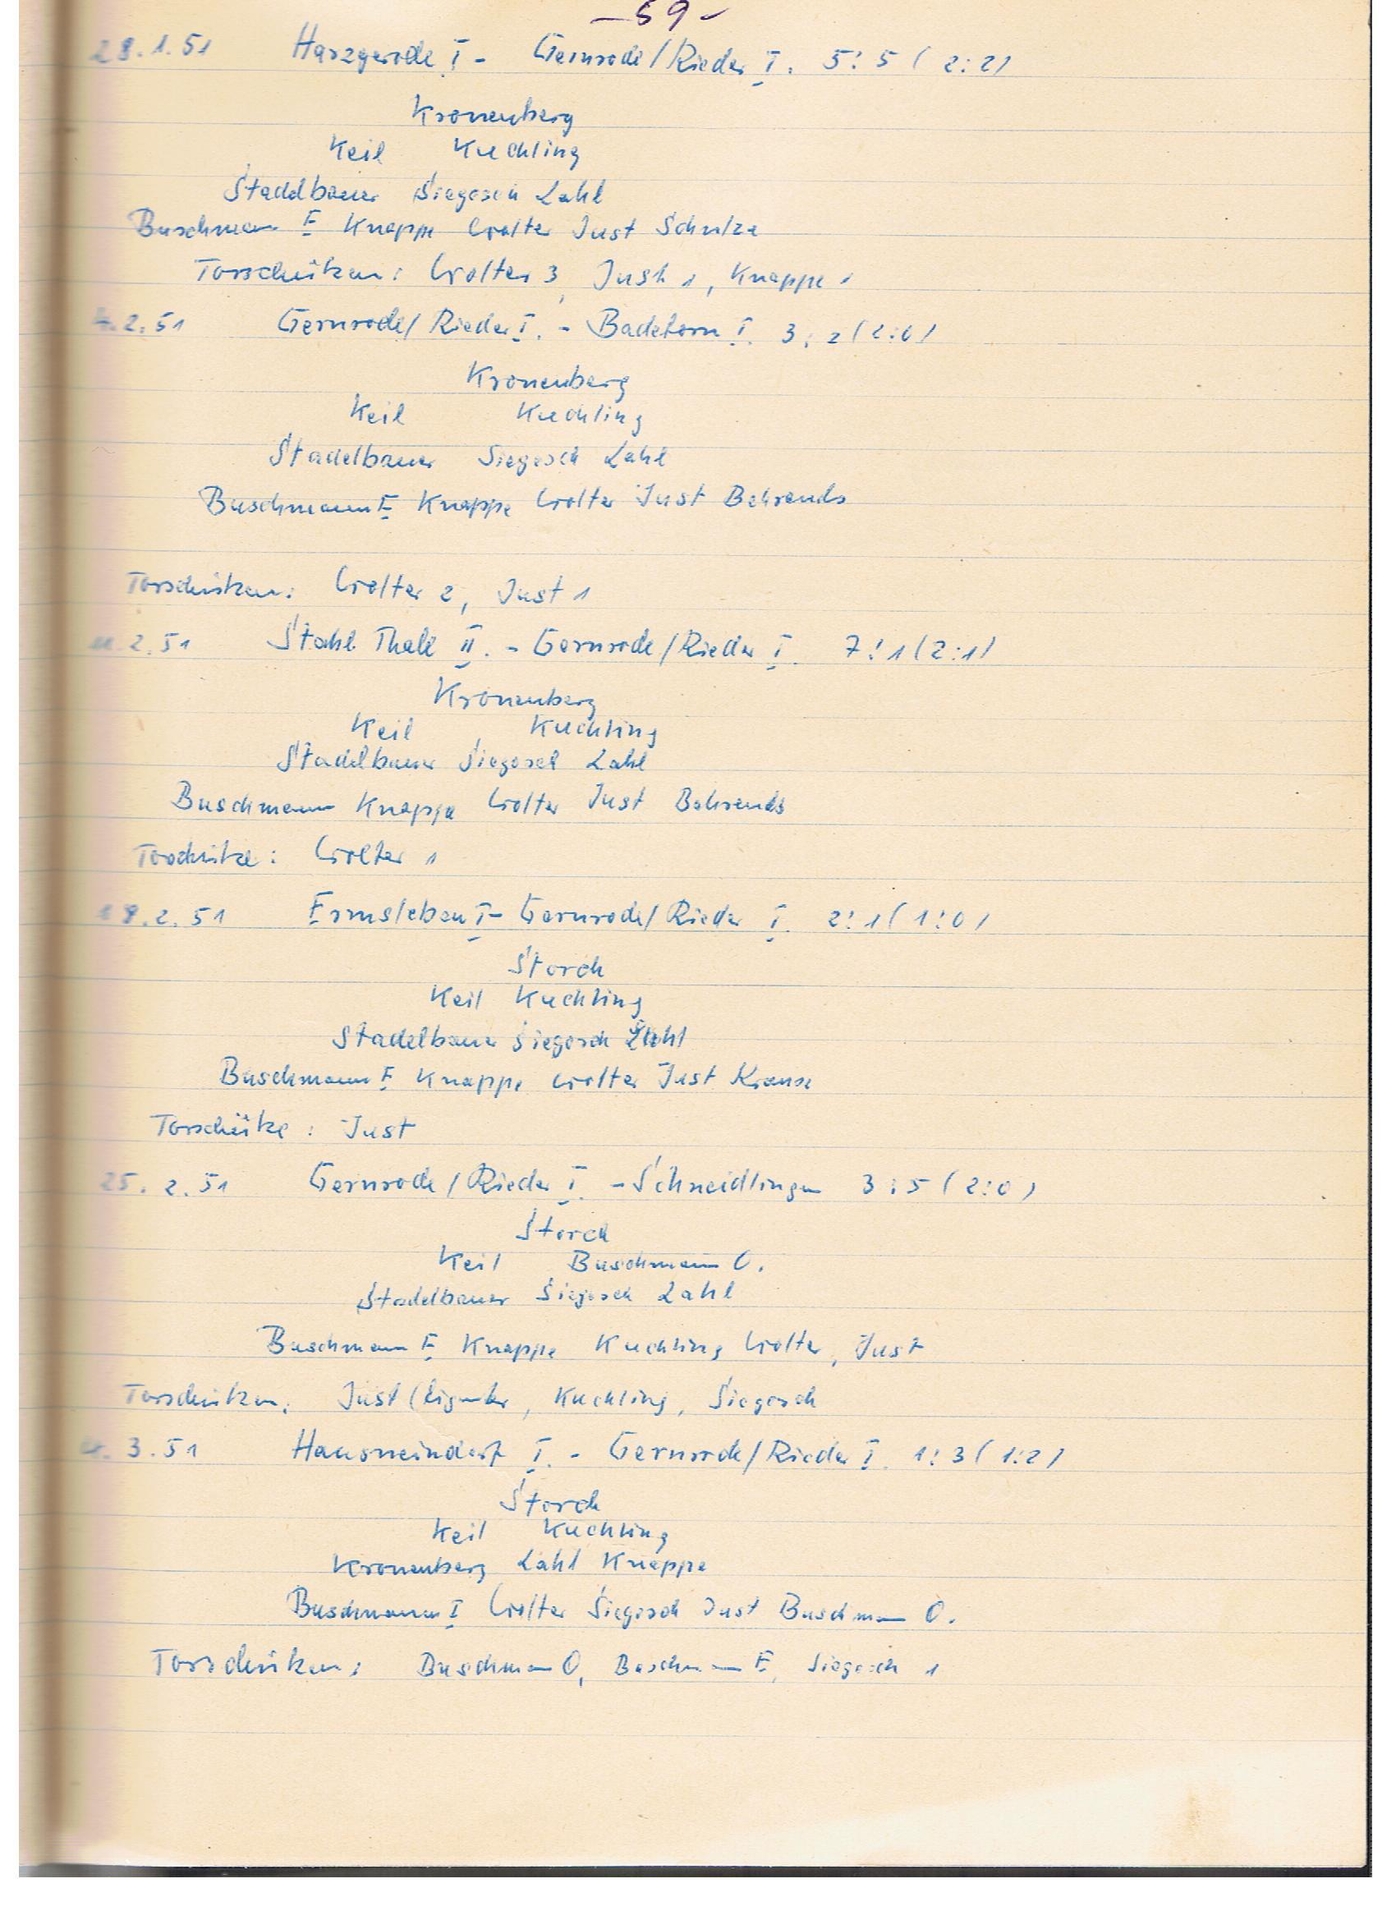 - 59 -
28.1.51 Harzgerode I - Gernrode/Rieder I. 5:5 (2:2)
Kronenberg
Keil Kuchling
Stadelbauer Siegesch Lahl
Buschmann E Knappe Wolter Just Schulze
Torschützen: Wolter 3, Just 1, Knappe 1
4.2.51 Gernrode/Rieder I. - Badeborn I. 3:2 (2:0)
Kronenberg
Keil Kuchling
Stadelbauer Siegesch Lahl
Buschmann E Knappe Wolter Just Behrends
Torschützen: Wolter 2, Just 1
11.2.51 Stahl Thale II. - Gernrode/Rieder I. 7:1 (2:1)
Kronenberg
Keil Kuchling
Stadelbauer Siegesch Lahl
Buschmann Knappe Wolter Just Behrends
Torschütze: Wolter 1
18.2.51 Ermsleben I - Gernrode/Rieder I. 2:1 (1:0)
Storch
Keil Kuchling
Stadelbauer Siegesch Lahl
Buschmann E Knappe Wolter Just Krause
Torschütze: Just
25.2.51 Gernrode/Rieder I. - Schneidlingen 3:5 (2:0)
Storch
Keil Buschmann O.
Stadelbauer Siegesch Lahl
Buschmann E Knappe Kuchling Wolter, Just
Torschützen: Just, Kuchling, Siegesch
4.3.51 Hausneindorf I. - Gernrode/Rieder I. 1:3 (1:2)
Storch
Keil Kuchling
Kronenberg Lahl Knappe
Buschmann I Wolter Siegesch Just Buschmann O.
Torschützen: Buschmann O, Buschmann E, Siegesch 1